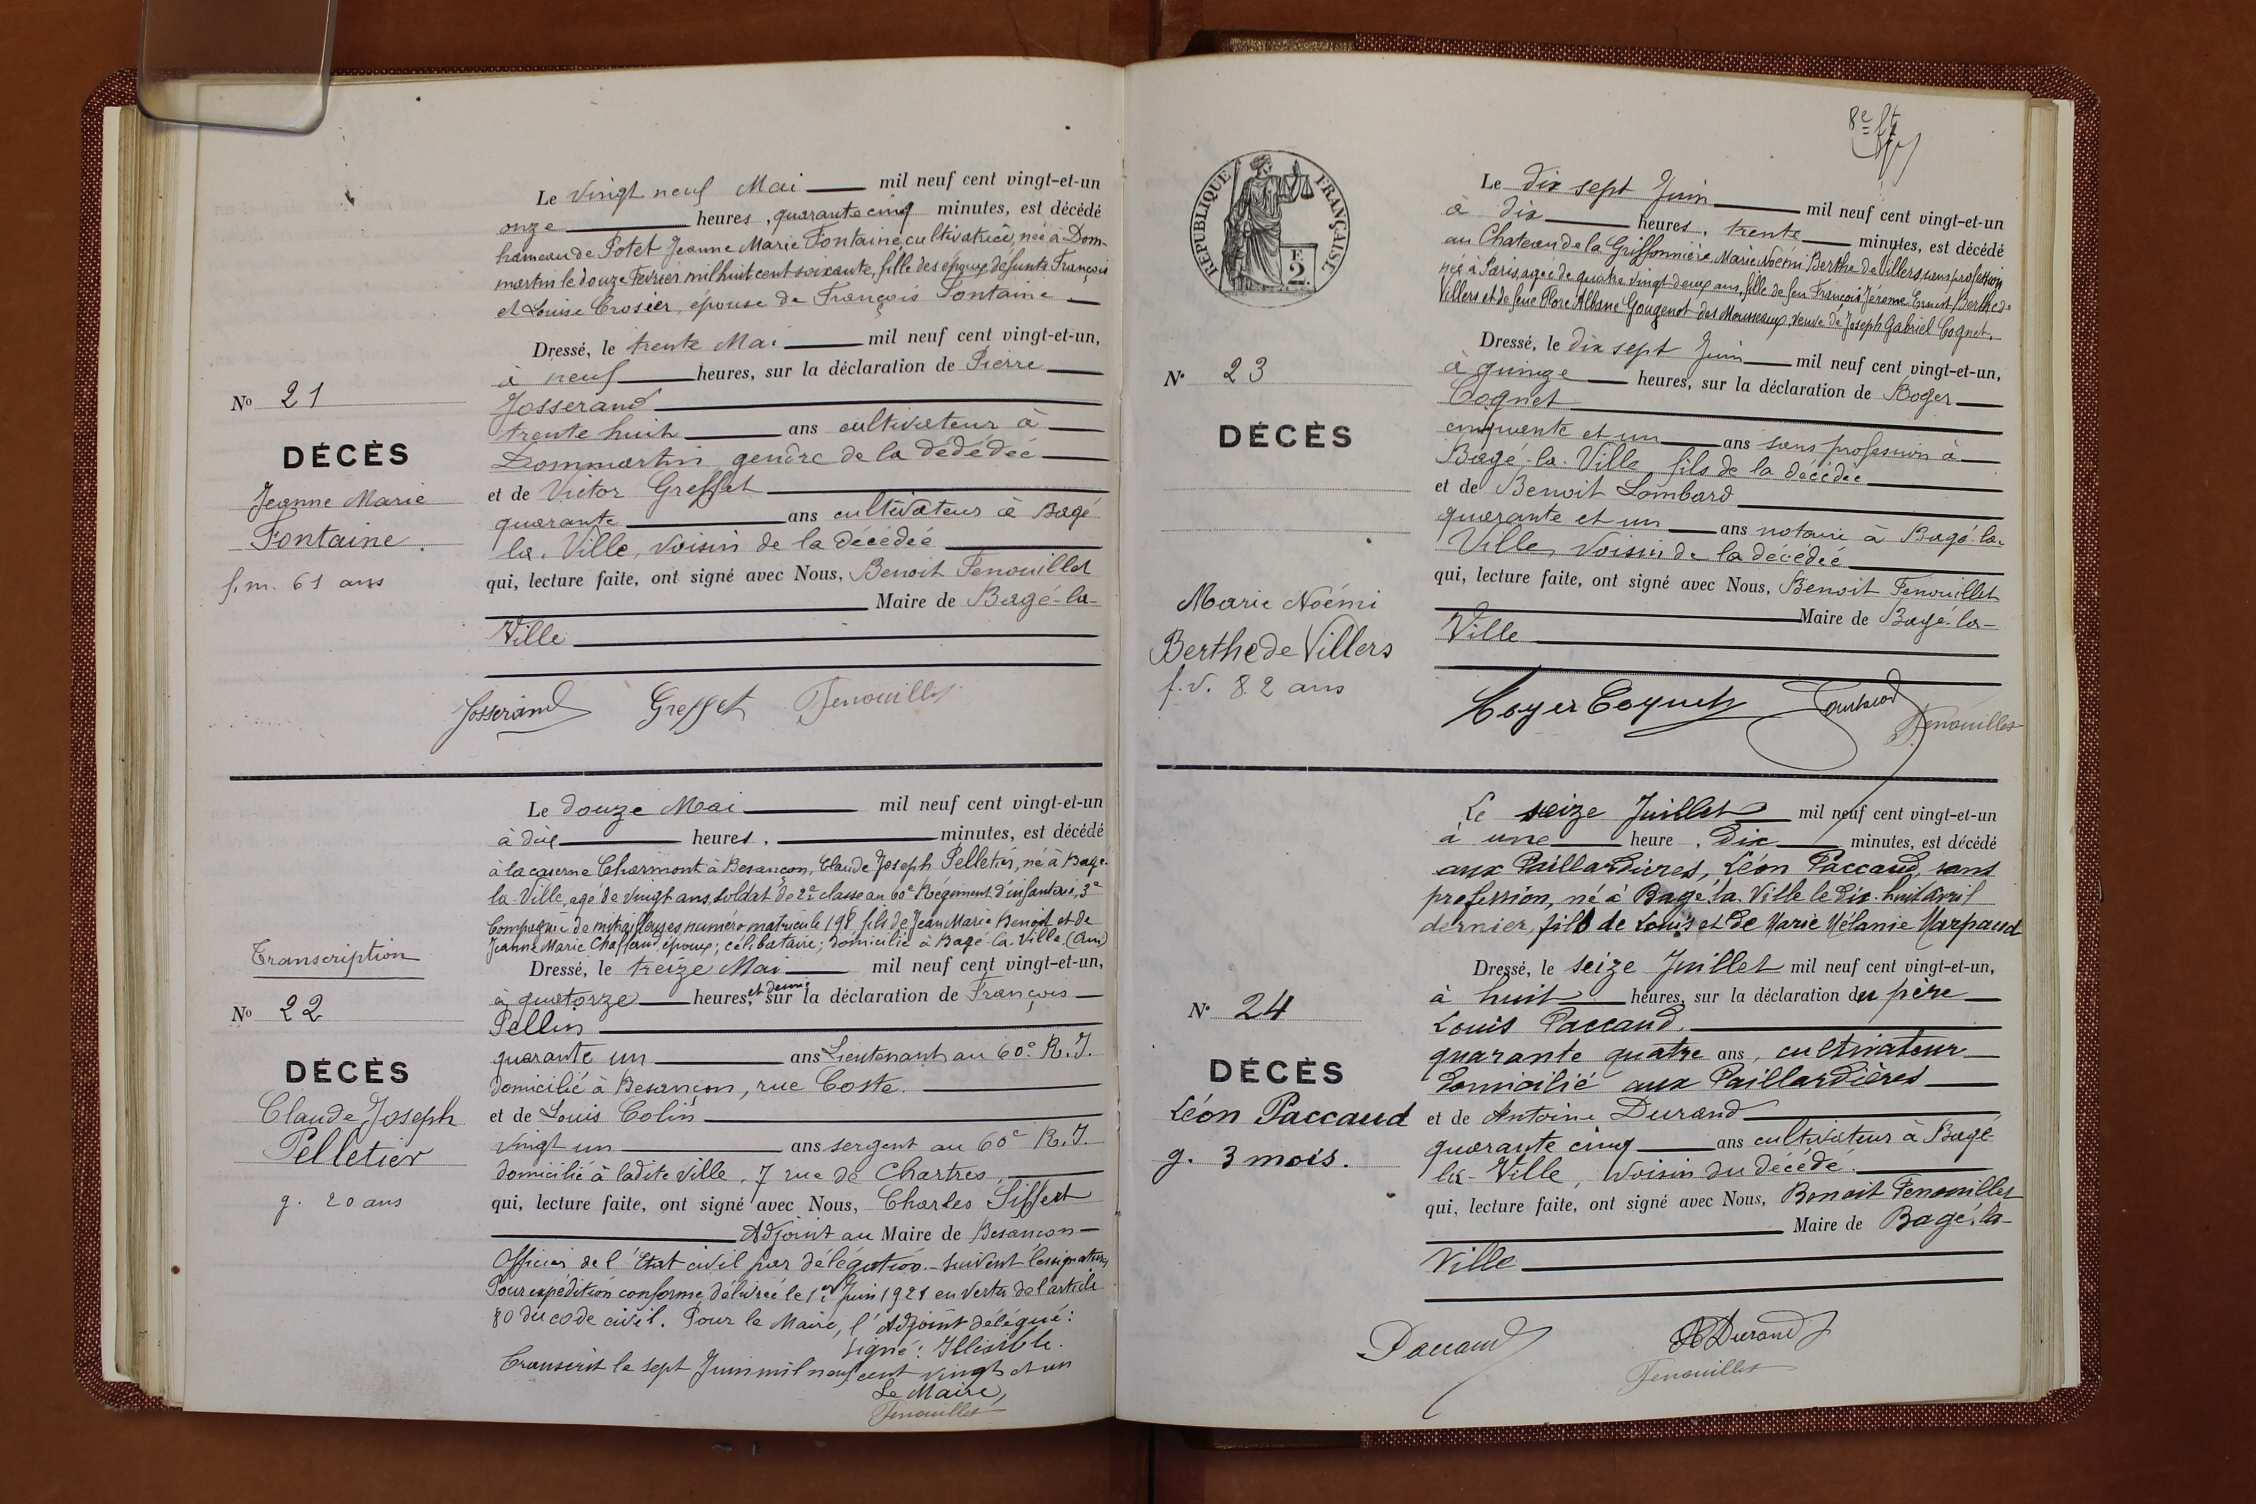 Le vingt neuf Mai mil neuf cent vingt-et-un
onze heures, quarante cinq minutes, est décédé
hameau de Potet Jeanne Marie Fontaine, cultivatrice, née à Dom-
martin le douze Fevrier mil huit cent soixante, fille des époux défunts François
et Louise Crosier, épouse de François Fontaine
Dressé, le trente Mai mil neuf cent vingt-et-un,
à neuf heures, sur la déclaration de Pierre
Josserand
trente huit ans cultivateur à
Dommartin gendre de la dédédée
et de Victor Greffet
quarante ans cultivateur à Bagé
la-Ville, voisin de la décédée
qui, lecture faite, ont signé avec Nous, Benoit Fenouillet
Maire de Bagé-la-
Ville
Josserand Greffet Fenouillet
No 21
DÉCÈS
Jeanne Marie
Fontaine.
f. m. 61 ans
Le douze Mai mil neuf cent vingt-et-un
à dix heures, minutes, est décédé
à la caserne Charmont à Besançon, Claude Joseph Pelletier, né à Bagé-
la-Ville, agé de vingt ans, soldat de 2e classe au 60e Régiment d'infanterie, 3e
Compagnie de mitrailleuses, numéro matricule 198 fils de Jean Marie Benoit et de
Jeanne Marie Chaffaud époux; célibataire; domicilié à Bagé-la-Ville (Ain)
Dressé, le treize Mai mil neuf cent vingt-et-un,
à quatorze heures, et demie sur la déclaration de François
Pellin
quarante un ans Lieutenant au 60e R.I.
domicilié à Besançon, rue Coste.
et de Louis Colin
vingt un ans sergent au 60e R.I.
domicilié à ladite ville, 7 rue de Chartres,
qui, lecture faite, ont signé avec Nous, Charles Siffert
Adjoint au Maire de Besançon
Officier de l'Etat civil par délégation. - Suivent les signatures
Pour expédition conforme, délivrée le 1er Juin 1921 en vertu de l'article
80 du code civil. Pour le Maire, l'Adjoint délégué:
signé: Illisible.
Transcrit le sept Juin mil neuf cent vingt et un
Le Maire,
Fenouillet
Transcription
No 22
DÉCÈS
Claude Joseph
Pelletier
g. 20 ans
8e
RÉPUBLIQUE FRANÇAISE
F.
2.
Le dix sept Juin mil neuf cent vingt-et-un
à dix heures, trente minutes, est décédé
au Chateau de la Griffonnière Marie Noémi Berthe de Villers, sans profession
née à Paris, agée de quatre vingt deux ans, fille de feu François Jérome Ernest Berthe de
Villers et de feue Flore Albane Gougenot des Mousseaux, veuve de Joseph Gabriel Cognet.
Dressé, le dix sept Juin mil neuf cent vingt-et-un,
à quinze heures, sur la déclaration de Roger
Cognet
cinquante et un ans sans profession à
Bagé-la-Ville, fils de la décédée
et de Benoit Lombard
quarante et un ans notaire à Bagé-la-
Ville, voisin de la décédée
qui, lecture faite, ont signé avec Nous, Benoit Fenouillet
Maire de Bagé-la-
Ville
Roger Cognet Lombard
Fenouillet
No 23
DÉCÈS
Marie Noémi
Berthe de Villers
f. v. 82 ans
Le seize Juillet mil neuf cent vingt-et-un
à une heure, dix minutes, est décédé
aux Paillardières, Léon Paccaud, sans
profession, né à Bagé-la-Ville le dix-huit avril
dernier, fils de Louis et de Marie Mélanie Marpaud
Dressé, le seize Juillet mil neuf cent vingt-et-un,
à huit heures, sur la déclaration du père
Louis Paccaud.
quarante quatre ans, cultivateur
domicilié aux Paillardières
et de Antoine Durand
quarante cinq ans cultivateur à Bagé-
la-Ville, voisin du décédé.
qui, lecture faite, ont signé avec Nous, Benoit Fenouillet
Maire de Bagé-la-
Ville
Paccaud A Durand
Fenouillet
No 24
DÉCÈS
Léon Paccaud
g. 3 mois.